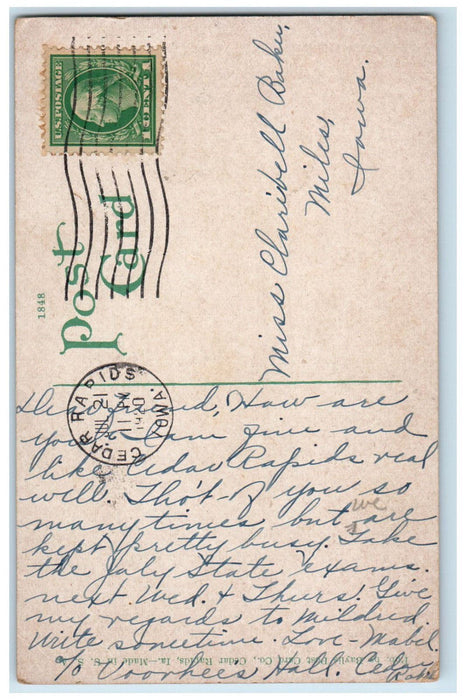 U.S. POSTAGE
1 CENT 1
Post
Card
1848
CEDAR RAPIDS
IOWA.
JUL 21
11 AM
Miss Claribell Baker,
Miles,
Iowa.
Dear friend, How are
you? I am fine and
like Cedar Rapids real
well. Tho't of you so
many times but we are
kept pretty busy. Take
the July State exams.
next Wed. & Thurs. Give
my regards to Mildred.
Write sometime. Love - Mabel.
% Voorhees Hall. Cedar
Rapids
Post Card Co., Cedar Rapids, Ia.—Made in U. S. A.